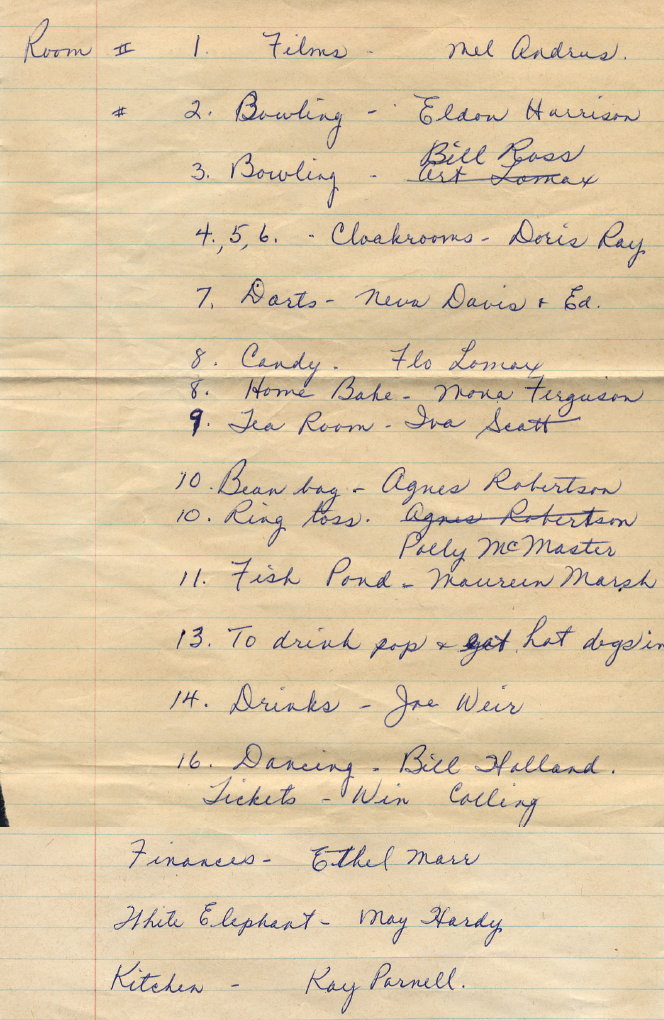 Room # 1. Films - Mel Andrus.
# 2. Bowling - Eldon Harrison
Bill Ross
3. Bowling - Art Lomax
4., 5, 6. - Cloakrooms - Doris Ray
7. Darts - Neva Davis & Ed.
8. Candy - Flo Lomax
8. Home Bake - Mona Ferguson
9. Tea Room - Iva Scott
10. Bean bag - Agnes Robertson
10. Ring toss. Agnes Robertson
Polly McMaster
11. Fish Pond - Maureen Marsh
13. To drink pop & eat hot dogs in
14. Drinks - Joe Weir
16. Dancing - Bill Holland.
Tickets - Win Colling
Finances - Ethel Marr
White Elephant - May Hardy
Kitchen - Kay Parnell.